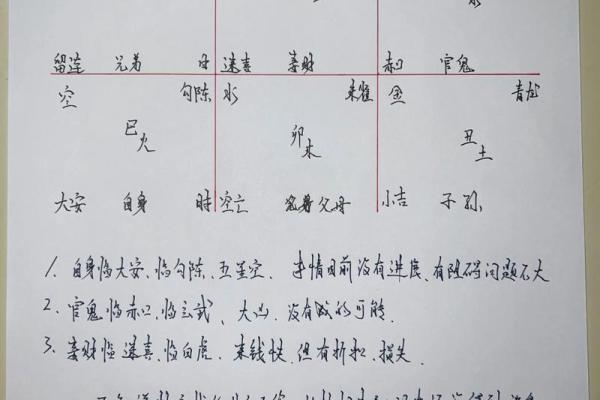 留连 兄弟 日 速喜 妻财 赤口 官鬼
空 勾陈 水 朱雀 金 青龙
巳火 卯木 丑土
大安 自身 时 空亡 父母 小吉 子孙
1. 自身临大安、临勾陈、五星空、事情目前没有进展、有阻碍问题不大
2. 官鬼临赤口、临玄武、大凶、没有成的可能.
3. 妻财临速喜、临白虎、来钱快、但有折扣、损失.